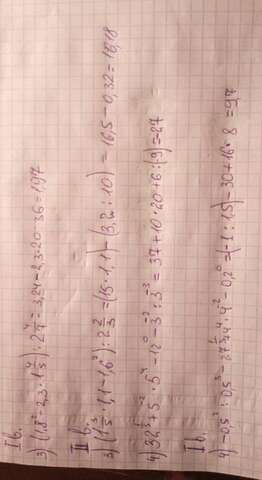 I в.
3) (1,8² - 2,3 · 1 4/5) : 2 4/4 = 3,24 - 2,3 · 20 · 36 = 1,97
II в.
3) (1 3/5 · 1,1 - 1,6²) : 2 2/3 = (15 · 1,1) - (3,2 : 10) = 16,5 - 0,32 = 16,18
4) 32 + 5⁻² · 5⁴ - 12⁰ - 3⁻² : 3⁻³ = 37 + 10 · 20 + 6 : (9) = 27
I в.
4) -0,5² : 0,5³ - 27 · 4⁴ · 4² - 0,2⁰ = (-1 : 1,5) - 30 + 16 · 8 = 9,7